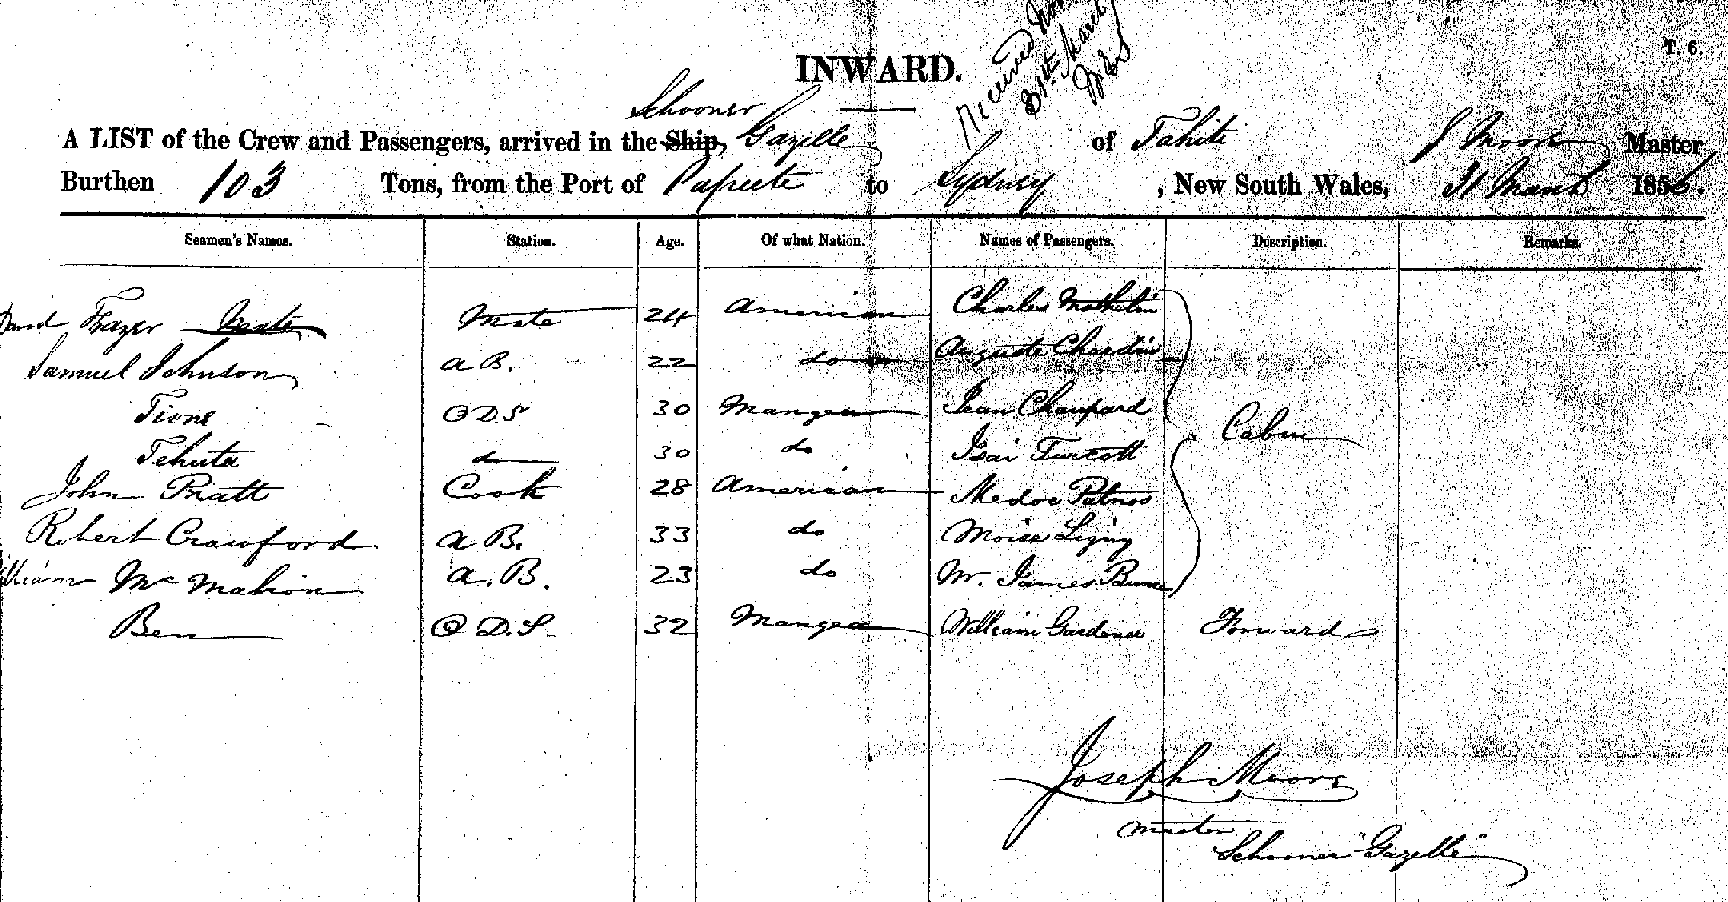 T. 6.
INWARD.
Received
31st March
Schooner
A LIST of the Crew and Passengers, arrived in the Ship, Gazelle of Tahiti J Moore Master
Burthen 103 Tons, from the Port of Papeete to Sydney, New South Wales, 31 March 1856.
Seamen's Names. Station. Age. Of what Nation. Names of Passengers. Description. Remarks.
David Frazer Mate Mate 24 American Charles
Samuel Johnson A B. 22 do Auguste Chardin
Tione O D S 30 Mangea Jean Chaupard
Tehuta do 30 do Isai Turcott
Cabin
John Pratt Cook 28 American Medoe Patnos
Robert Crawford A B. 33 do Moise Ligny
William McMahon A. B. 23 do Mr. James
Ben O D. S. 32 Mangea William Gardener Forward
Joseph Moore
Master
Schooner "Gazelle"